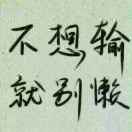 不想输
就别懒